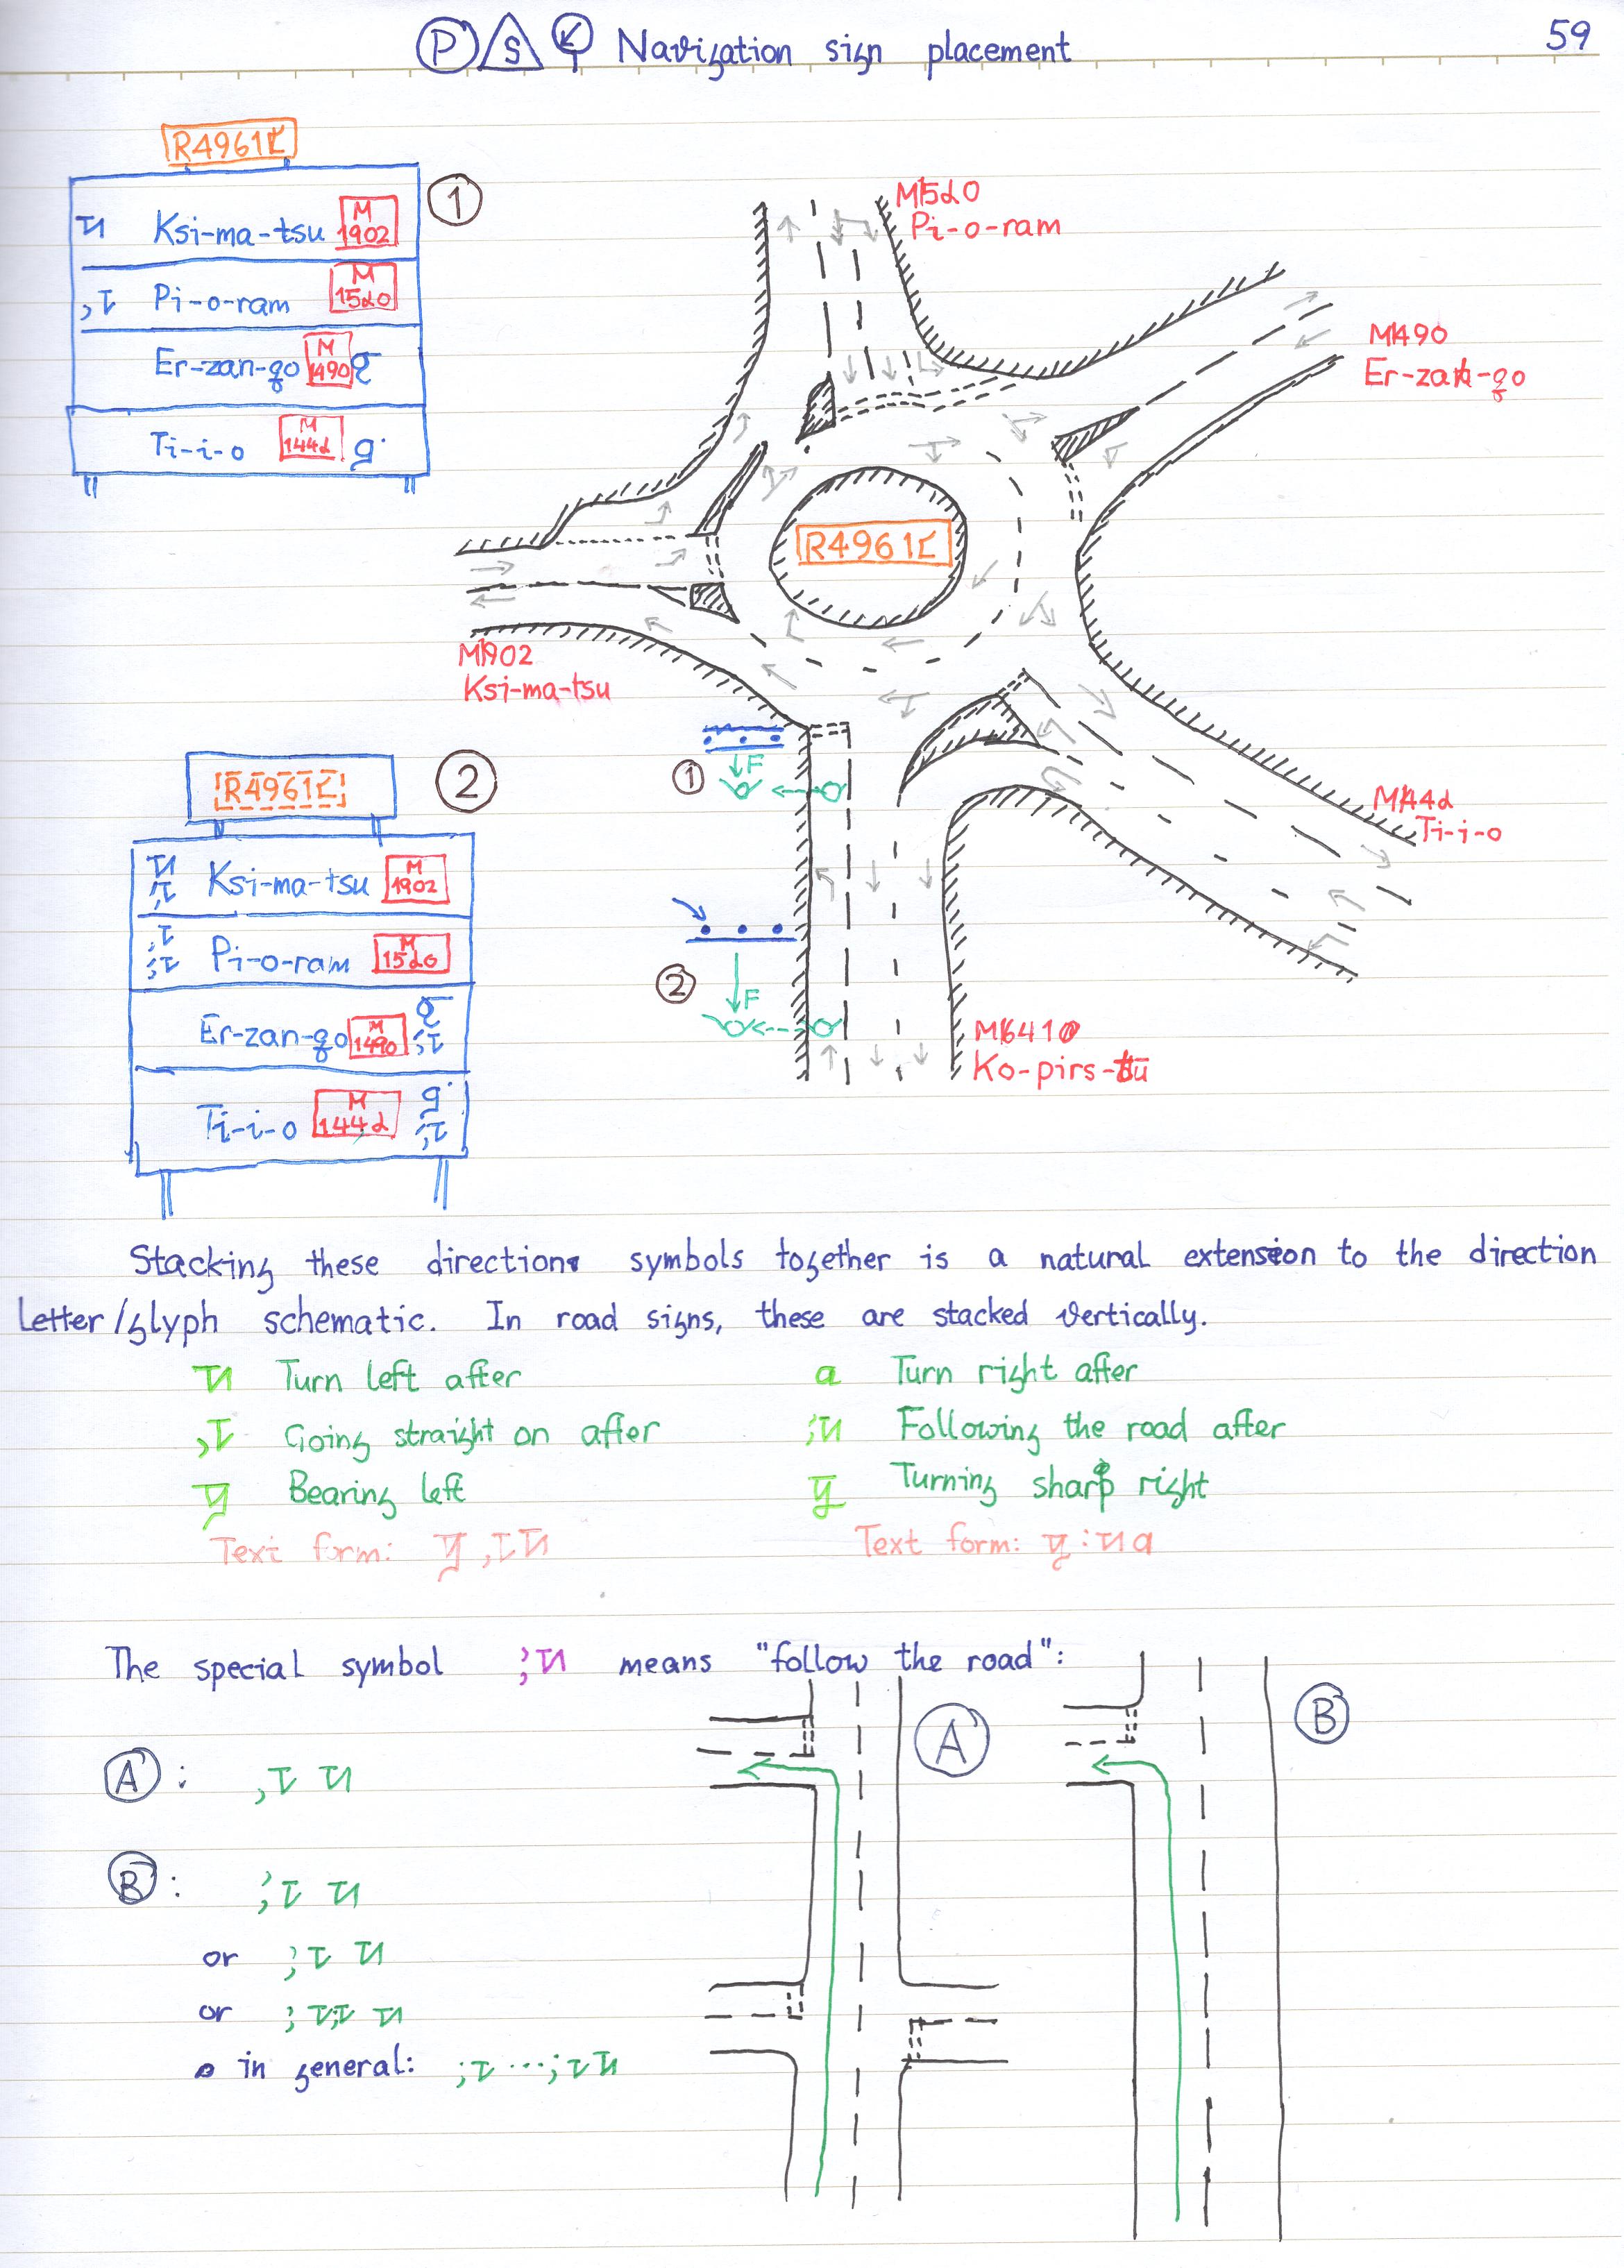 P S Navigation sign placement
59
Ksi-ma-tsu M 1902
Pi-o-ram
Er-zan-qo M 1490
Ti-i-o
1
Pi-o-ram
M1490
Er-zan-qo
M1902
Ksi-ma-tsu
1
F
Ti-i-o
2
Ksi-ma-tsu M 1902
Pi-o-ram
Er-zan-qo M 1490
Ti-i-o
2
F
M6410
Ko-pirs-tsu
Stacking these directions symbols together is a natural extension to the direction
letter/glyph schematic. In road signs, these are stacked vertically.
Turn left after
Turn right after
Going straight on after
Following the road after
Bearing left
Turning sharp right
Text form:
Text form:
The special symbol means "follow the road":
A
B
A:
B:
or
or
in general: